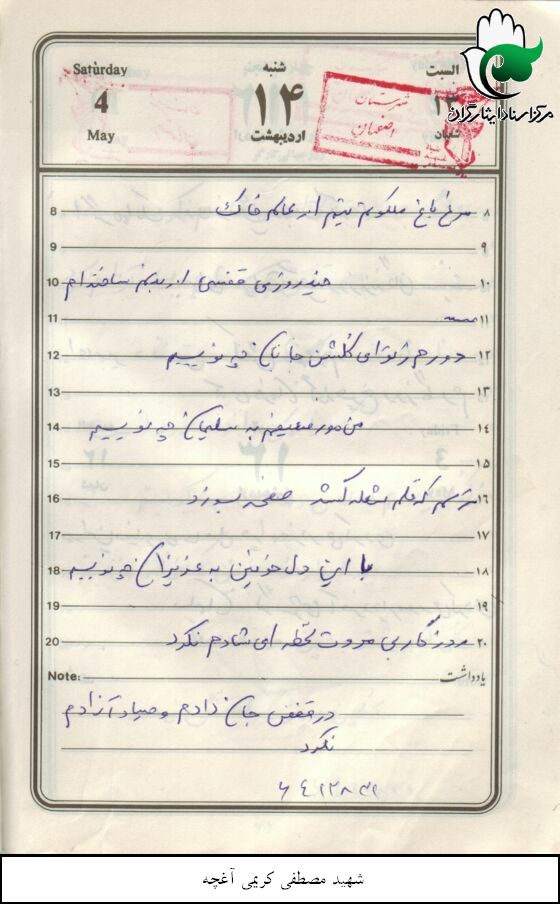 مرکز اسناد ایثارگران
Saturday
شنبه
السبت
4
۱۴
۱۳
May
اردیبهشت
شعبان
شهرستان
اصفهان
8 مرغ باغ ملکوتم نیم از عالم خاک ۸
9 ۹
10 چند روزی قفسی از بدنم ساخته‌اند ۱۰
11 ۱۱
12 دورم ز تو ای گلشن جانان چه نویسم ۱۲
13 ۱۳
14 من مور ضعیفم به سلیمان چه نویسم ۱۴
15 ۱۵
16 ترسم که قلم شعله کشد صفحه بسوزد ۱۶
17 ۱۷
18 با این دل حزین به عزیزان چه نویسم ۱۸
19 ۱۹
20 روزگار بی مروت لحظه ای شادم نکرد ۲۰
Note: یادداشت
در قفس جان دادم و صیاد آزادم
نکرد
شهید مصطفی کریمی آغچه